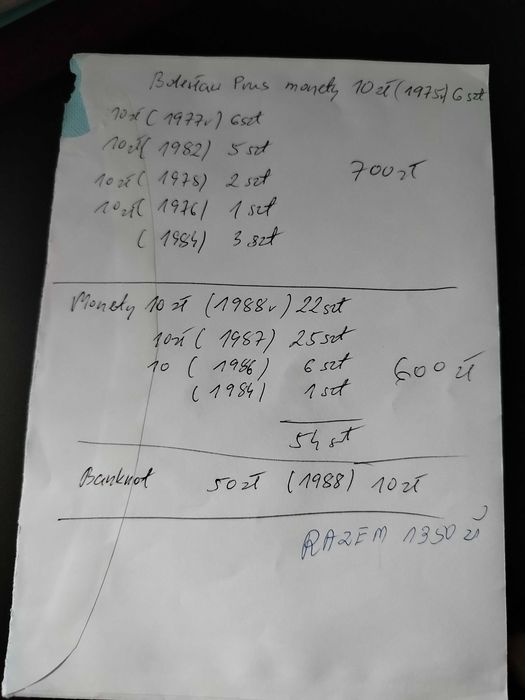 Bolesław Prus monety 10 zł (1975r) 6 szt
10 zł (1977r) 6 szt
10 zł (1982) 5 szt
10 zł (1978) 2 szt
700 zł
10 zł (1976) 1 szt
(1984) 3 szt
Monety 10 zł (1988r) 22 szt
10 zł (1987) 25 szt
10 (1986) 6 szt
600 zł
(1984) 1 szt
54 szt
Banknot 50 zł (1988) 10 zł
RAZEM 1350 zł